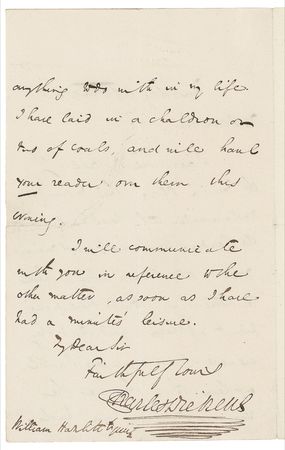 anything to do with in my life.
I have laid in a chaldron or
two of coals, and will haul
your reader over them this
evening.
I will communicate
with you in reference to the
other matter, as soon as I have
had a minute's leisure.
My Dear Sir
Faithfully Yours
Charles Dickens
William Hazlitt Esquire